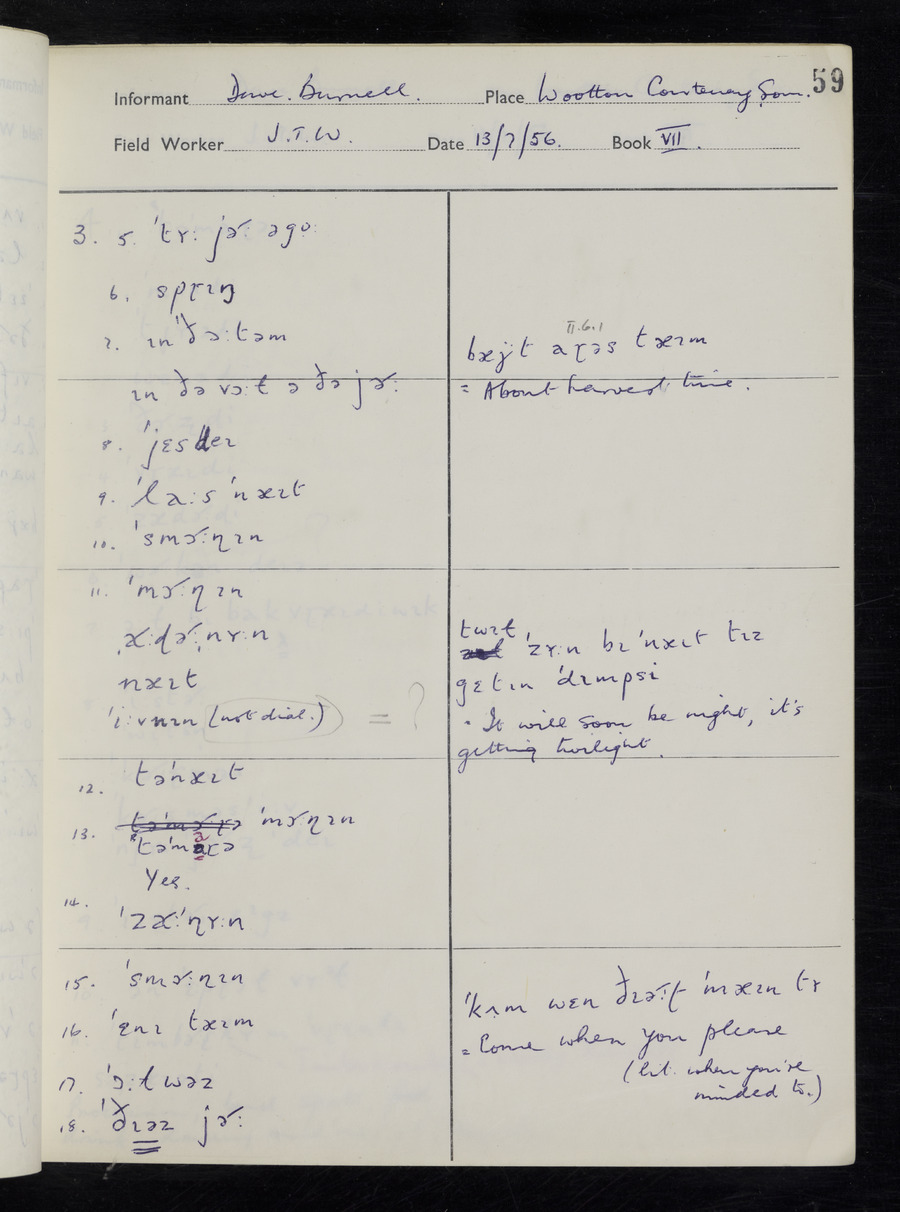 59
Informant Dave. Burnell. Place Wootton Courtenay, Som.
Field Worker J.T.W. Date 13/7/56. Book VII.
3. 5. ˈtʏ: jɚ: əgo:
6. spɽɪŋ
7. ɪnˈðə:təm
ɪn ðə vɔ:ɫ ə ðə jɚ:
8. ˈjɛsdeɪ
9. ˈla:s ˈnæɪt
10. ˈsmɔ˞:ɳɪn
11. ˈmɔ˞:ɳɪn
næɪt
ˈi:vnɪn (not dial.) = ?
12. təˈnæɪt
13. ˈmɔ˞:ɳɪn
ˈtəˈmaɽə
Yes.
14.
15. ˈsmɔ˞:ɳɪn
16. ˈɛnɪ tæɪm
17. ˈɔ:ɫwəz
18. ˈðɪəz jɚ:
II.6.1
bæʝt aɽəs tæɪm
= About harvest time.
twɪɫ
ˈzʏ:n bɪ ˈnæɪt tɪz
gɛtɪn ˈdɪmpsi
· It will soon be night, it's
getting twilight.
ˈkʌm wɛn ðɪɚ:ʈ ˈmæɪn tʏ
= Come when you please
(lit. when you're
minded to.)